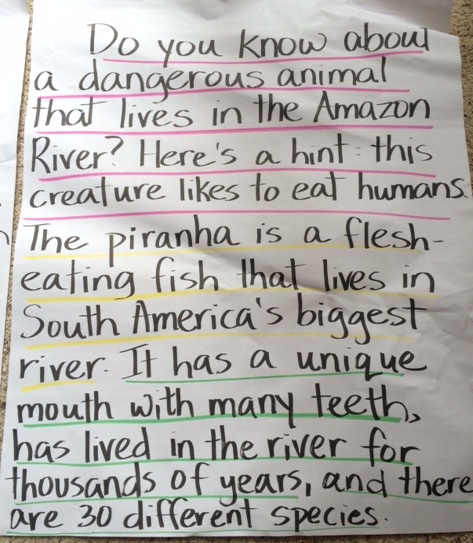 Do you know about
a dangerous animal
that lives in the Amazon
River? Here's a hint: this
creature likes to eat humans.
The piranha is a flesh-
eating fish that lives in
South America's biggest
river. It has a unique
mouth with many teeth,
has lived in the river for
thousands of years, and there
are 30 different species.